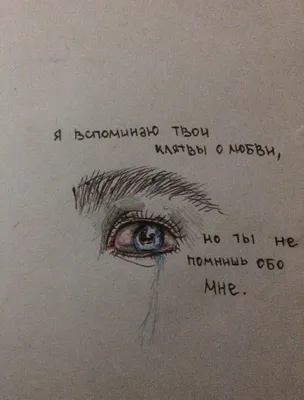 я вспоминаю твои
клятвы о любви,
но ты не
помнишь обо
мне.